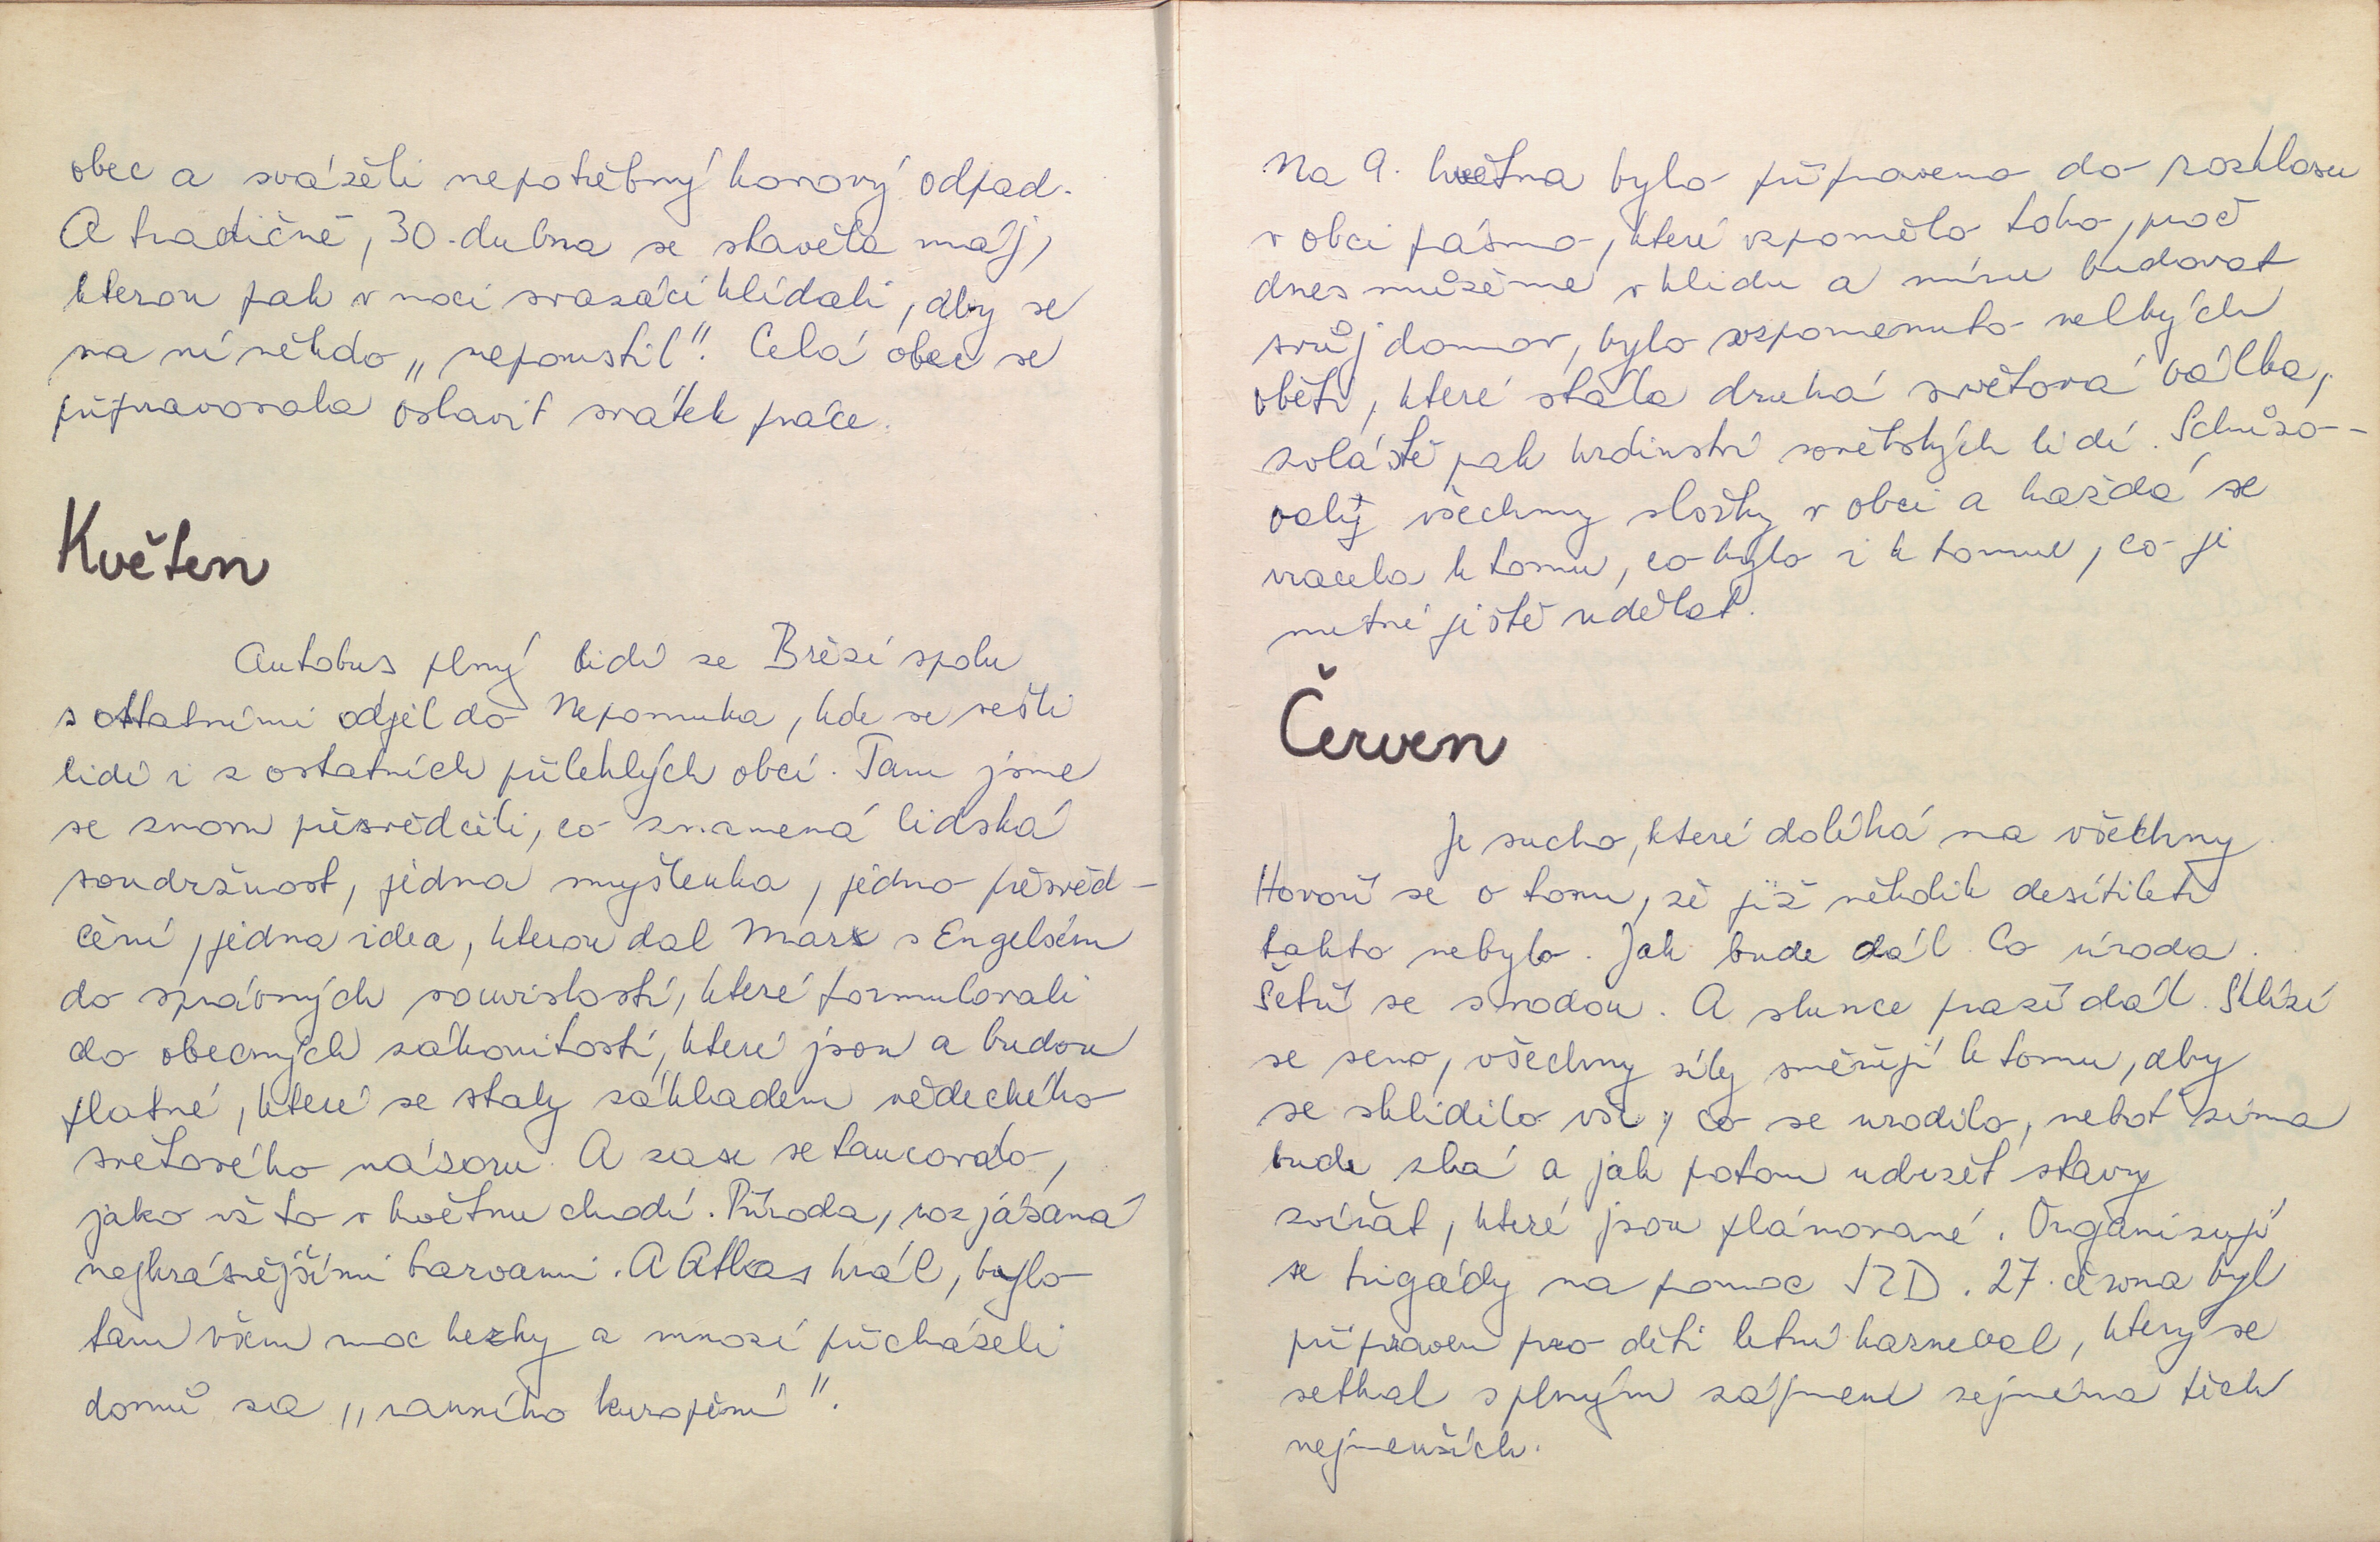 obec a sváželi nepotřebný kovový odpad.
A tradičně, 30. dubna se stavěla máj,
kterou pak v noci svazáci hlídali, aby se
na ní někdo „nepoustil". Celá obec se
připravovala oslavit svátek práce.
Květen
Autobus plný lidí ze Březí spolu
s ostatními odjel do Nepomuka, kde se sešli
lidé i z ostatních přilehlých obcí. Tam jsme
se znovu přesvědčili, co znamená lidská
soudržnost, jedna myšlenka, jedno přesvěd-
čení, jedna idea, kterou dal Marx s Engelsem
do správných souvislostí, které formulovali
do obecných zákonitostí, které jsou a budou
platné, které se staly základem vědeckého
světového názoru. A zase se tancovalo,
jako už to v květnu chodí. Příroda, rozjásaná
nejkrásnějšími barvami. A Atlas hrál, bylo
tam všem moc hezky a mnozí přicházeli
domů za „ranního kuropění".
Na 9. května bylo připraveno do rozhlasu
v obci pásmo, které vzpomělo toho, proč
dnes můžeme v klidu a míru budovat
svůj domov, bylo vzpomenuto velkých
obětí, které stála druhá světová válka,
zvláště pak hrdinství sovětských lidí. Schůzo-
valy všechny složky v obci a každá se
vracela k tomu, co bylo i k tomu, co je
nutné ještě udělat.
Červen
Je sucho, které doléhá na všechny
Hovoří se o tom, že již několik desítiletí
takto nebylo. Jak bude dál Co úroda.
Šetří se s vodou. A slunce praží dál. Sklízí
se seno, všechny síly směřují k tomu, aby
se sklidilo vše, co se urodilo, neboť zima
bude zlá a jak potom udržet stavy
zvířat, které jsou plánované. Organizují
se brigády na pomoc JZD. 27. června byl
připraven pro děti letní karneval, který se
setkal s plným zájmem zejména těch
nejmenších.